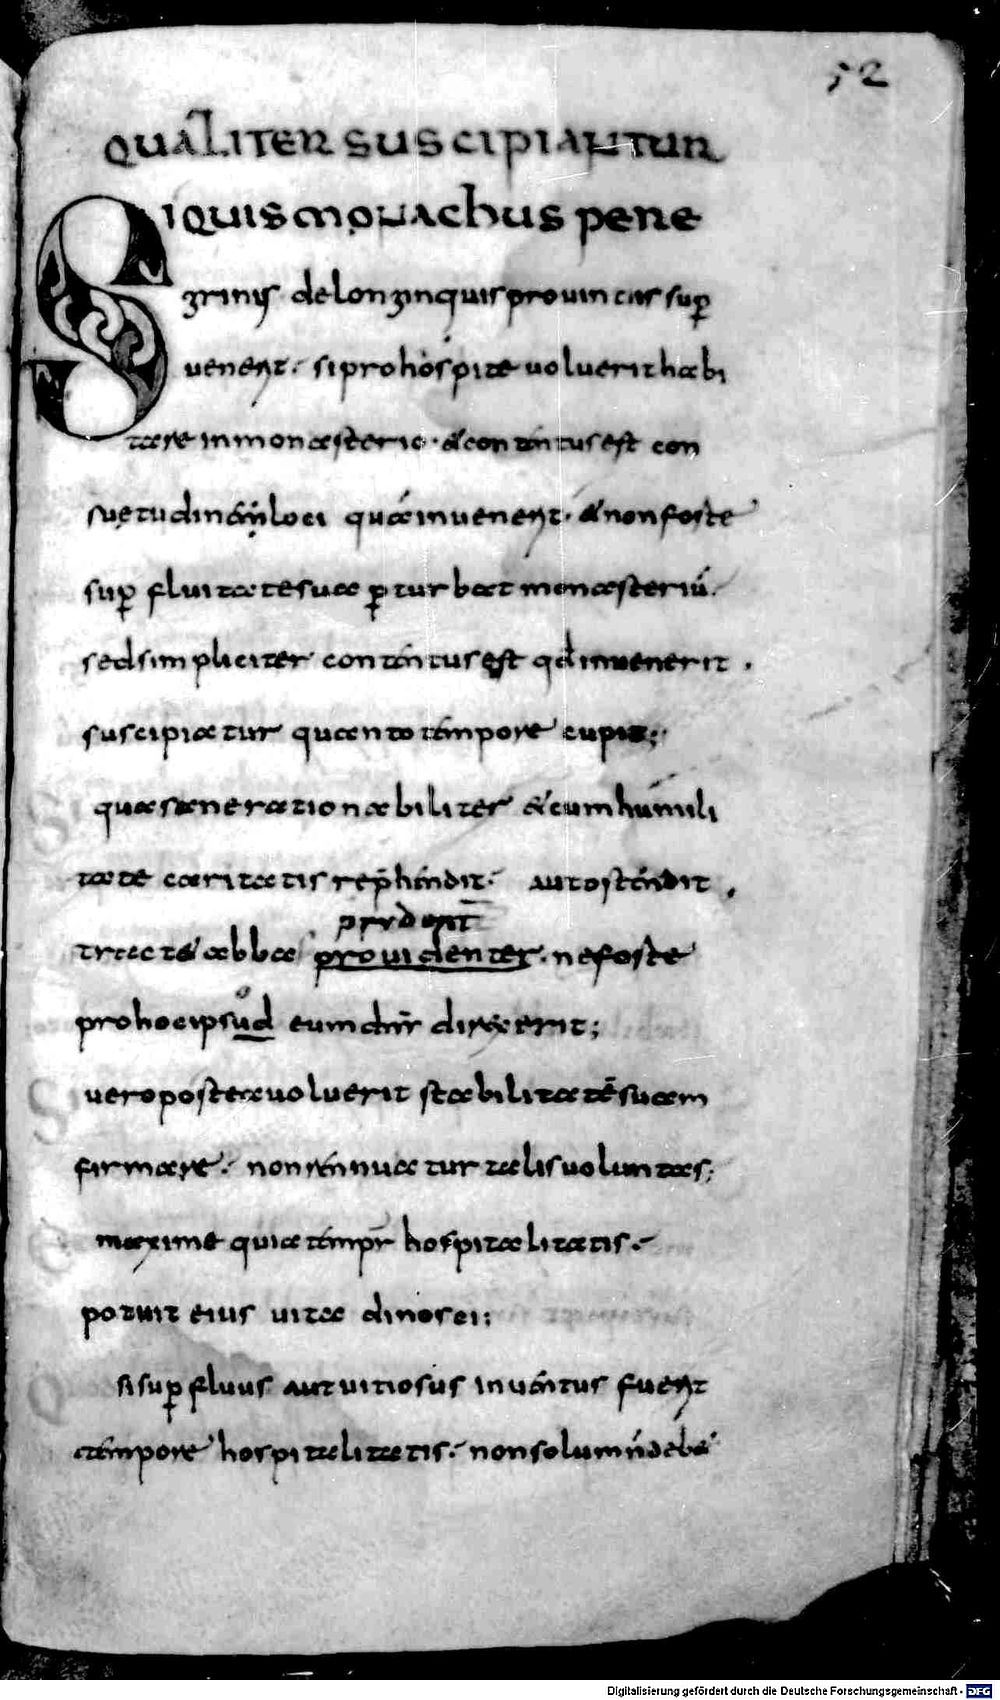 52
QUALITER SUSCIPIANTUR
SIQUIS MONACHUS PERE
grinus de longinquis provinciis sup̄
venerit· si pro hospite voluerit habi
tare in monasterio· & contentus est con
suętudinem loci quā invenerit· & non forte
sup̄ fluitate sua p̄turbat monasteriū·
sed simpliciter contentus est qđ invenerit ·
suscipiatur quanto tempore cupit;
qua sane rationabiliter & cum humili
tate caritatis rep̄hendit· aut ostendit ·
prudenť
tractet abba providenter· ne forte
pro hoc ipsud eum dn̄s direxerit;
vero postea voluerit stabilitatē suam
firmare· non rennuatur talis voluntas;
maxime quia tempr̄ hospitalitatis·
potuit eius vita dinosci;
si sup̄fluus aut vitiosus inventus fuerit
tempore hospitalitatis· non solum n̄ debet
Digitalisierung gefördert durch die Deutsche Forschungsgemeinschaft - DFG